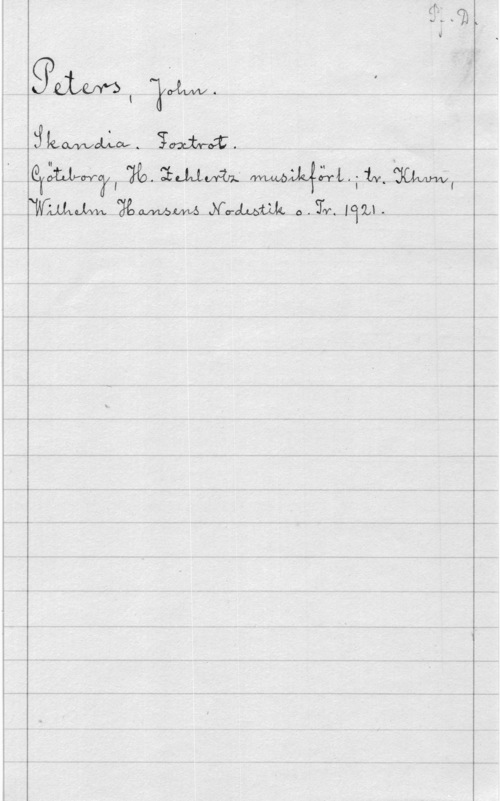 Pf. D.
Peters, John.
Skandia. Foxtrot.
Göteborg, H. Zehlertz musikförl.; tr. Khvn,
Wilhelm Hansens Nodestik o. Tr. 1921.